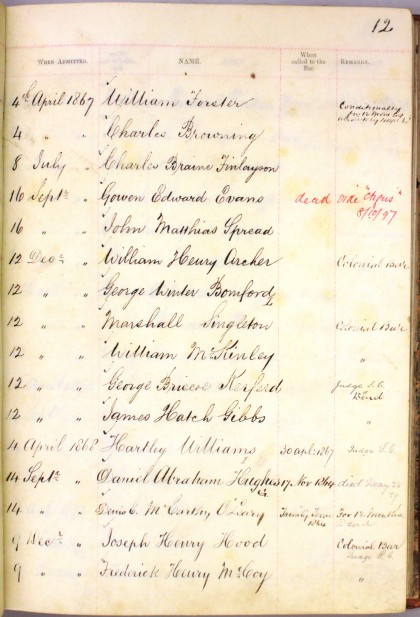 12
WHEN ADMITTED. NAME. When called to the Bar. REMARKS.
4th April 1867 William Forster Conditionally
4 " " Charles Browning
8 July " Charles Braine Finlayson
16 Septr " Gowen Edward Evans dead vide "Argus"
8/10/97
16 " " John Matthias Spread
12 Decr " William Henry Archer Colonial Bar
12 " " George Winter Bomford
12 " " Marshall Singleton Colonial Bar
12 " " William McKinley "
12 " " George Briscoe Kerferd Judge S.C.
12 " " James Hatch Gibbs "
4 April 1868 Hartley Williams 30 apl: 1867 Judge S.C.
14 Septr " Daniel Abraham Hughes 17. Nov 1864 died
14 " " Denis C. McCarthy O'Leary Trinity Term For 12 Months
1864
9 Decr " Joseph Henry Hood Colonial Bar
Judge S.C.
9 " " Frederick Henry McCoy "